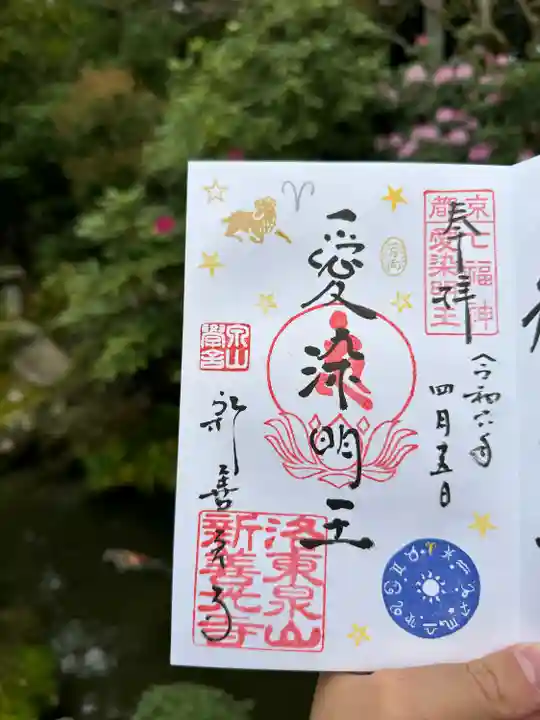 奉拝
京七福神
都愛染明王
令和六年
四月五日
愛染明王
泉山
新善光寺
洛東泉山
新善光寺